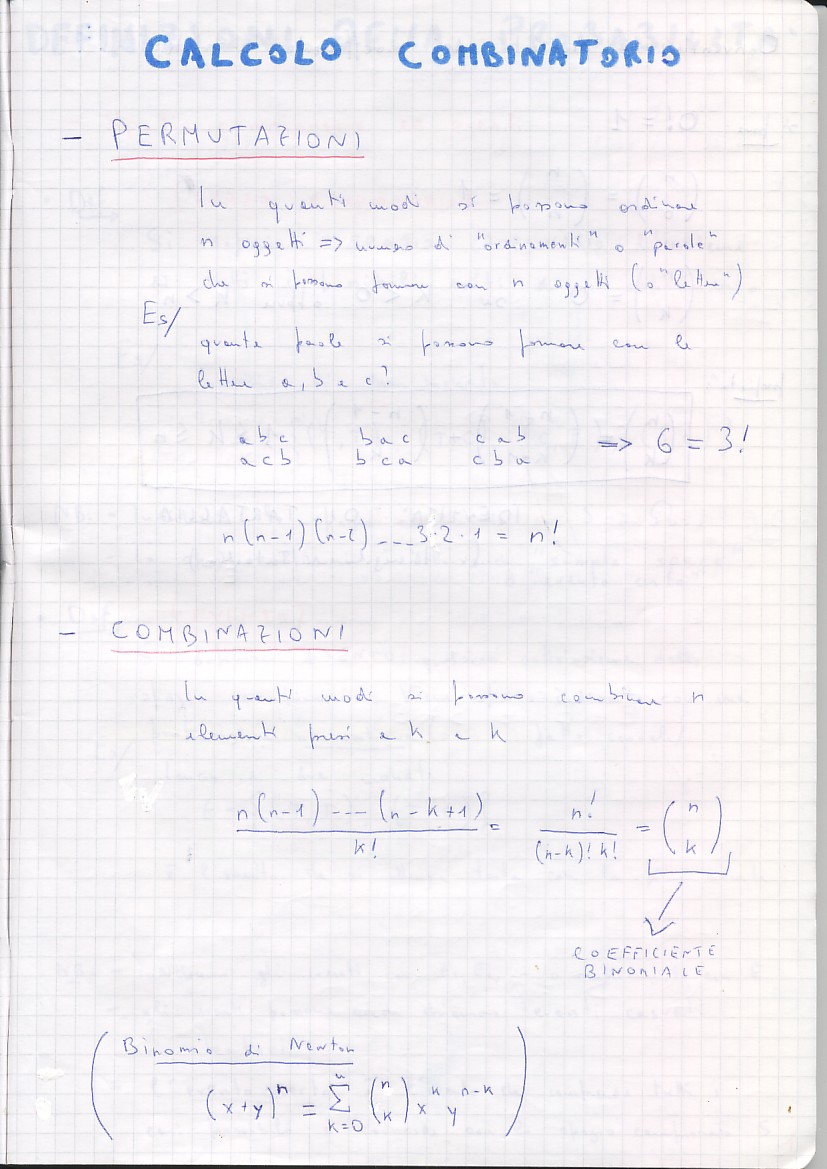 CALCOLO COMBINATORIO
- PERMUTAZIONI
In quanti modi si possono ordinare
n oggetti => numero di "ordinamenti" o "parole"
che si possono formare con n oggetti (o "lettere")
Es/
quante parole si possono formare con le
lettere a, b e c?
abc bac cab => 6 = 3!
acb bca cba
n(n-1)(n-2)...3·2·1 = n!
- COMBINAZIONI
In quanti modi si possono combinare n
elementi presi a k a k
n(n-1)----(n-k+1)/k! = n!/(n-k)!k! = (n k)
COEFFICIENTE
BINOMIALE
Binomio di Newton
(x+y)^n = Σ_{k=0}^{n} (n k) x^k y^{n-k}